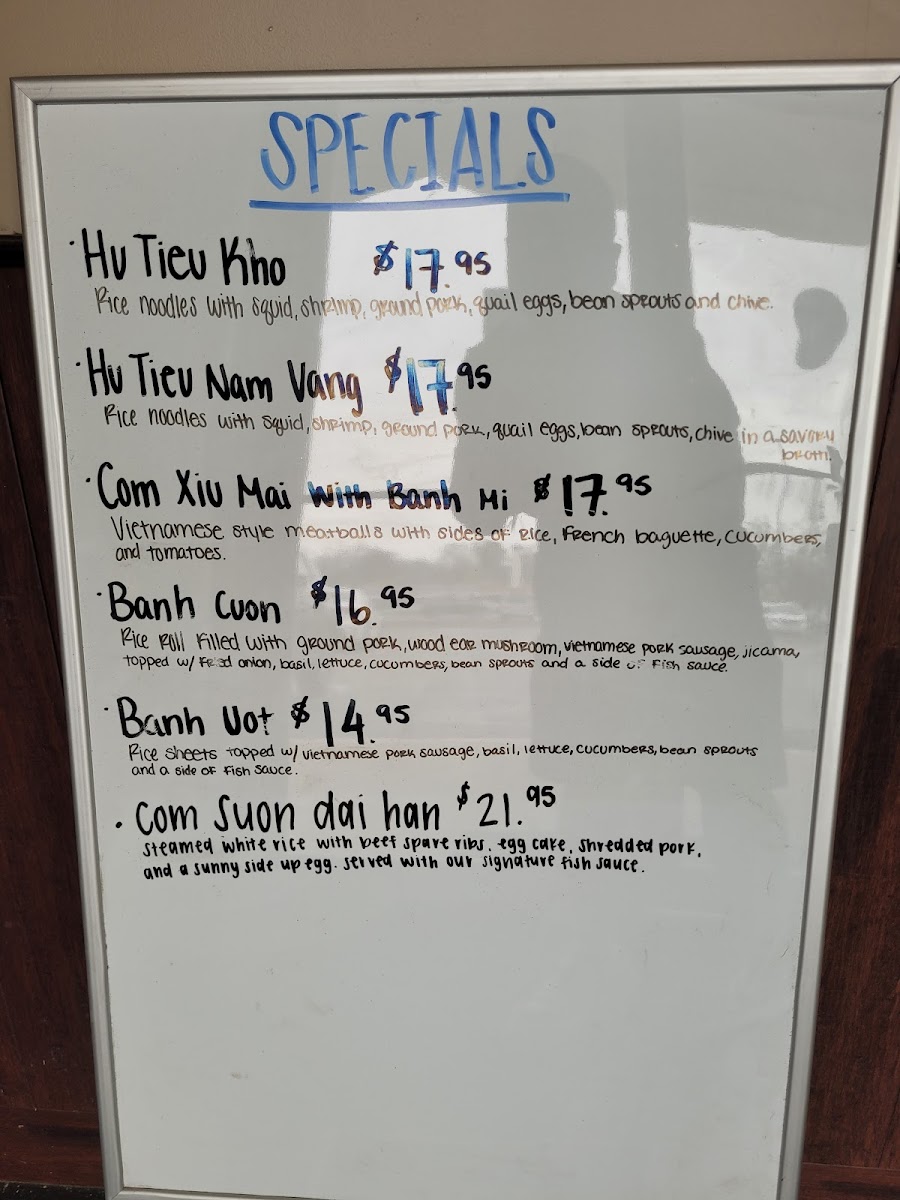 SPECIALS
· Hu Tieu Kho $17.95
Rice noodles with squid, shrimp, ground pork, quail eggs, bean sprouts and chive.
· Hu Tieu Nam Vang $17.95
Rice noodles with squid, shrimp, ground pork, quail eggs, bean sprouts, chive in a savory
broth.
· Com Xiu Mai With Banh Mi $17.95
Vietnamese style meatballs with sides of rice, French baguette, cucumbers,
and tomatoes.
· Banh Cuon $16.95
Rice Roll Filled with ground pork, wood ear mushroom, vietnamese pork sausage, jicama,
topped w/ fried onion, basil, lettuce, cucumbers, bean sprouts and a side of fish sauce.
· Banh Uot $14.95
Rice sheets topped w/ vietnamese pork sausage, basil, lettuce, cucumbers, bean sprouts
and a side of fish sauce.
· Com Suon dai han $21.95
steamed white rice with beef spare ribs, egg cake, shredded pork,
and a sunny side up egg. served with our signature fish sauce.